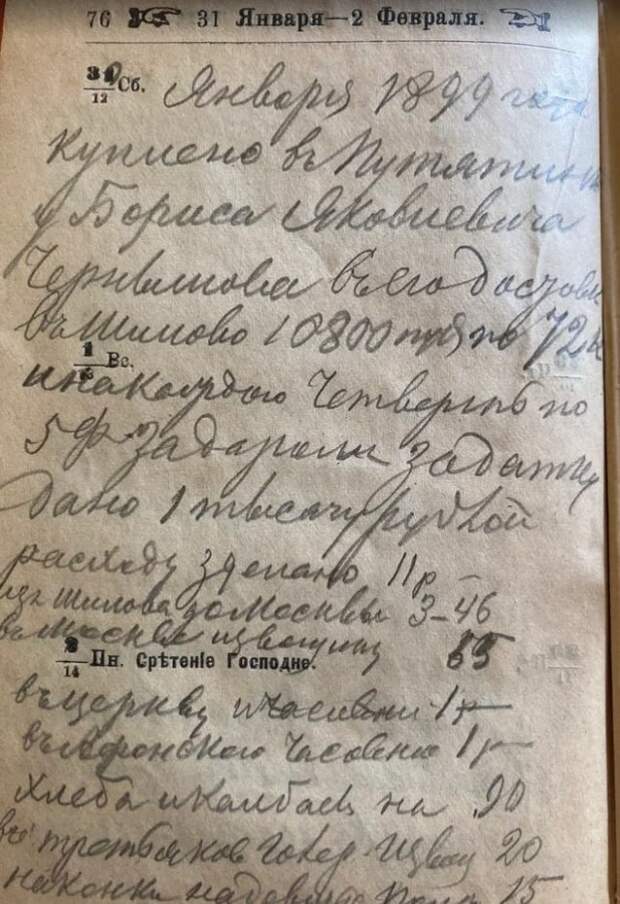 76 31 Января—2 Февраля.
31/12 Сб. Января 1899 года
куплено въ Путятин
у Бориса Яковлевича
въ его
въ Шилово 10800 пуд по 72 к
1/13 Вс.
и на каждою Четверть по
5 ф задаром задатку
дано 1 тысячу рублей
расходу зделано 11 р –
изъ Шилова до Москвы 3–46
въ Москве извощику 65
2/14 Пн. Срѣтеніе Господне.
въ церкву и часовни 1 р
въ Афонскою Часовню 1 р
хлеба и калбасы на 90
въ третьяков извощ 20
на конки 15